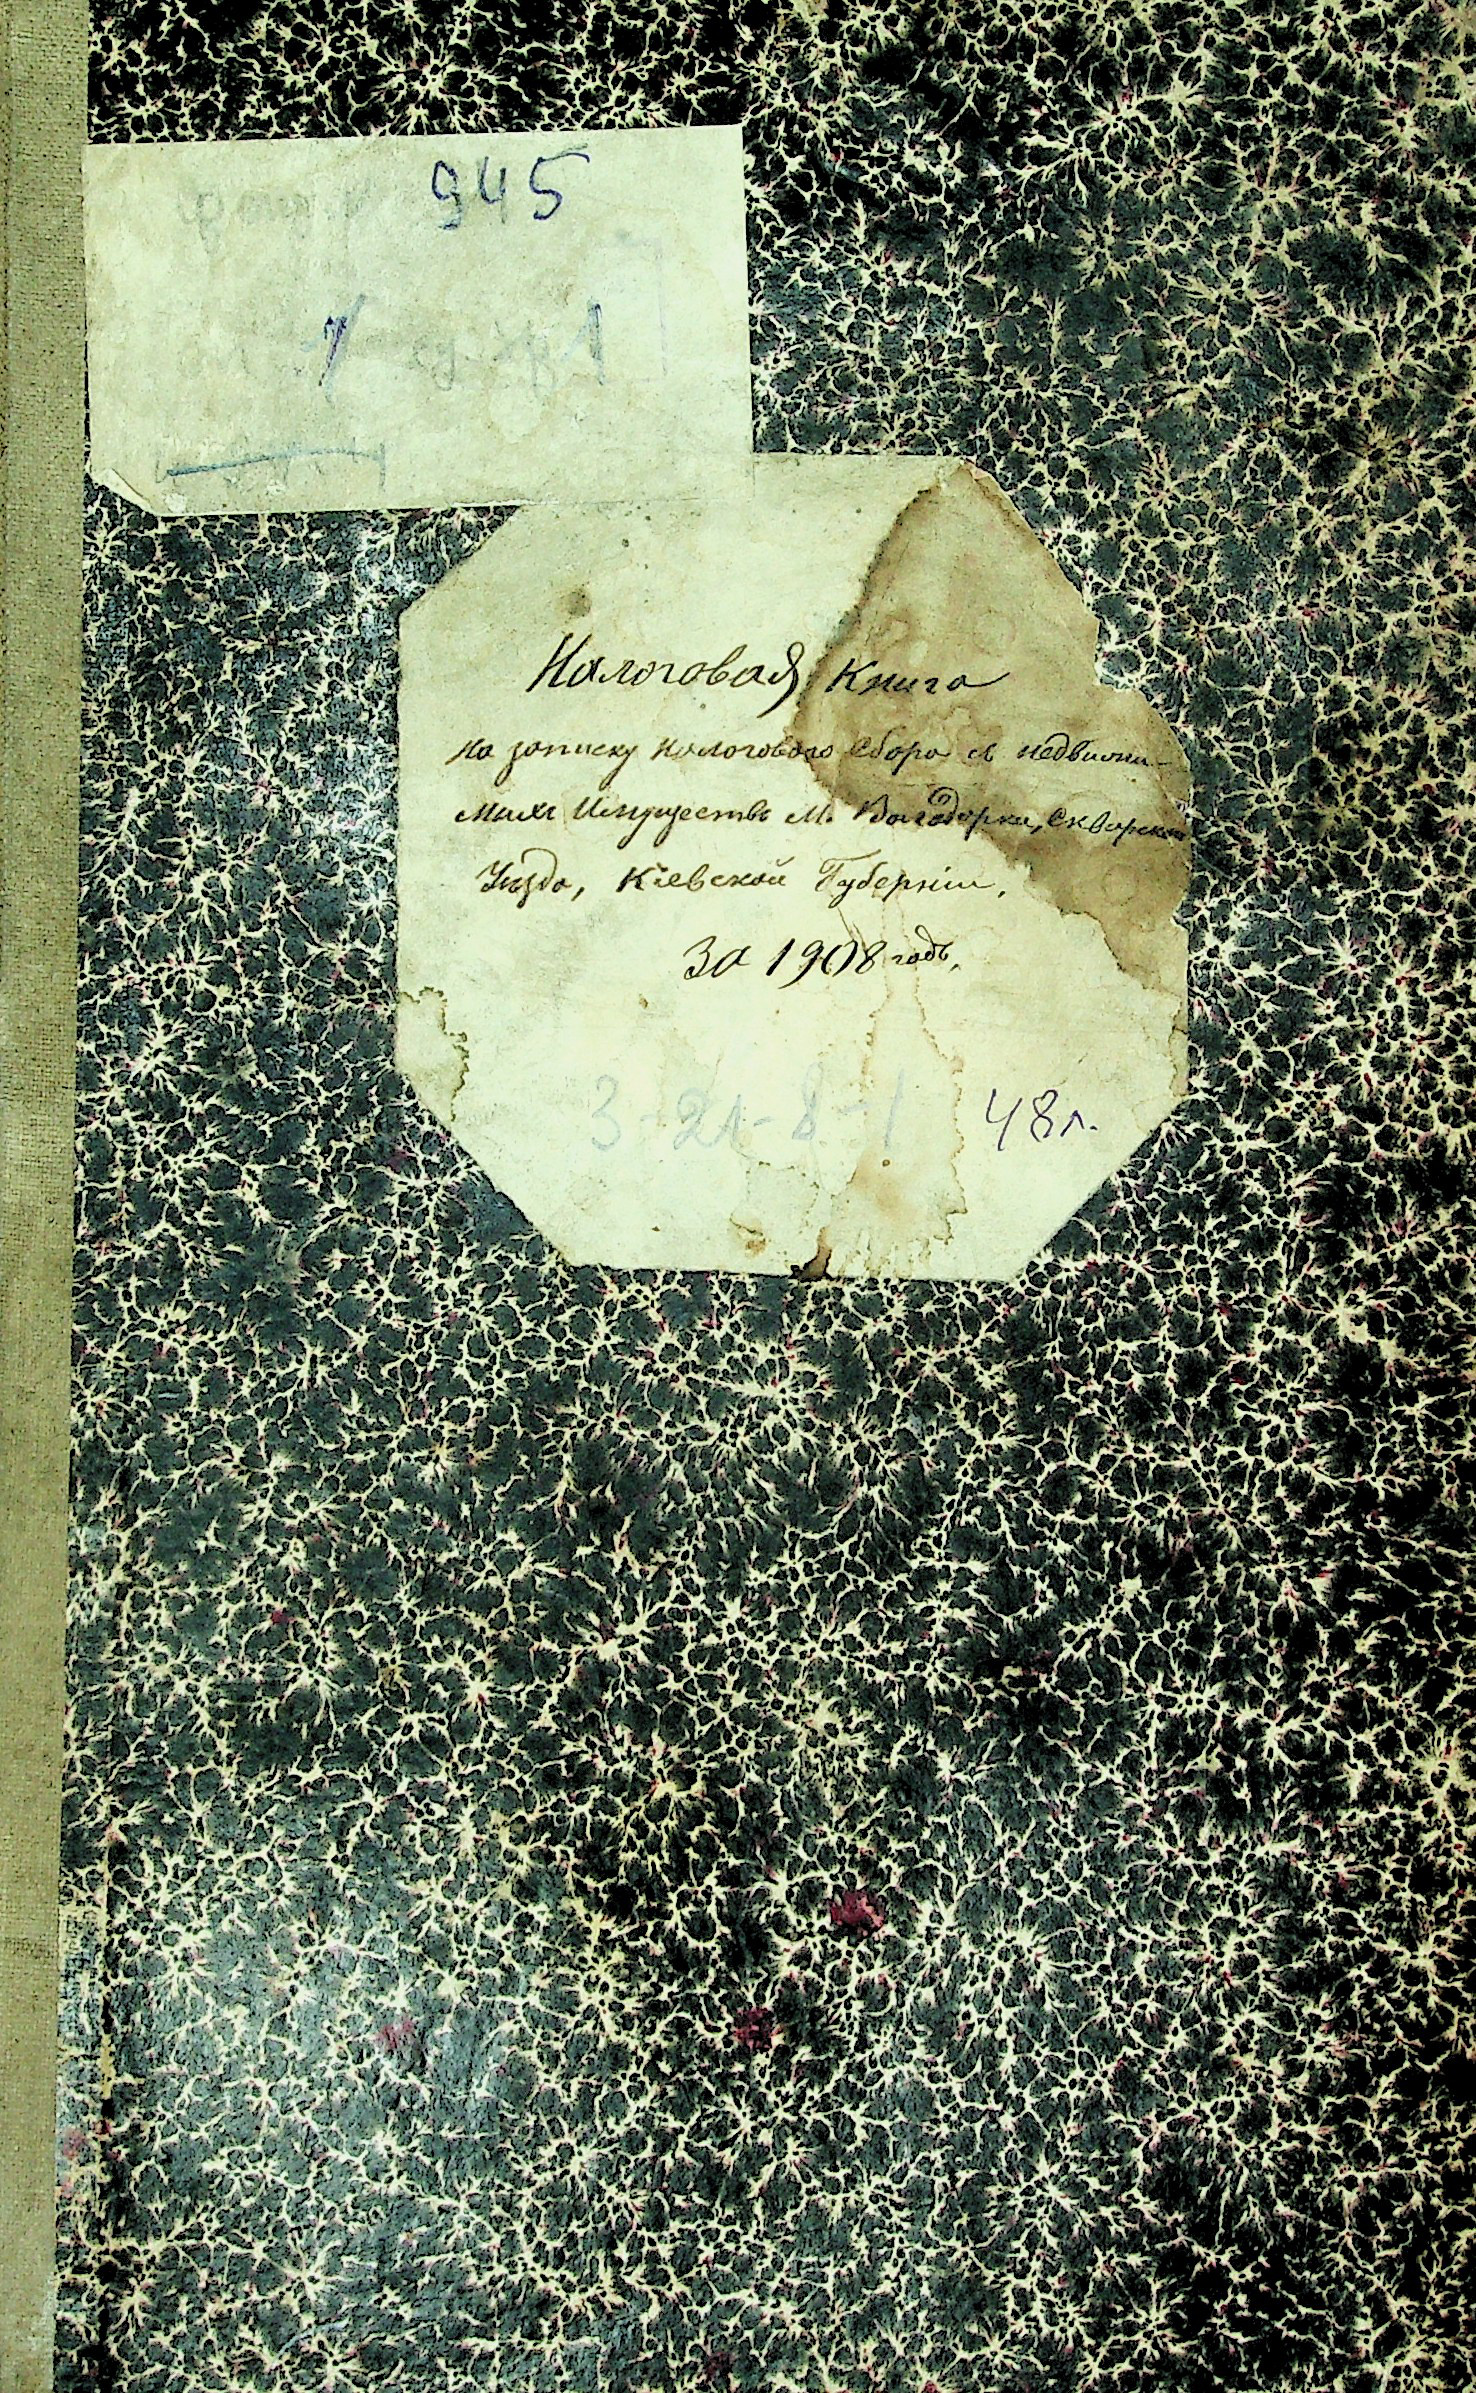 945
1
1
Налоговая Книга
на записку налогового сбора съ недвижи-
мыхъ Имуществъ М. Володарки, Сквирскаго
Уѣзда, Кіевской Губерніи,
за 1908 годъ,
3-21-8-1 48л.